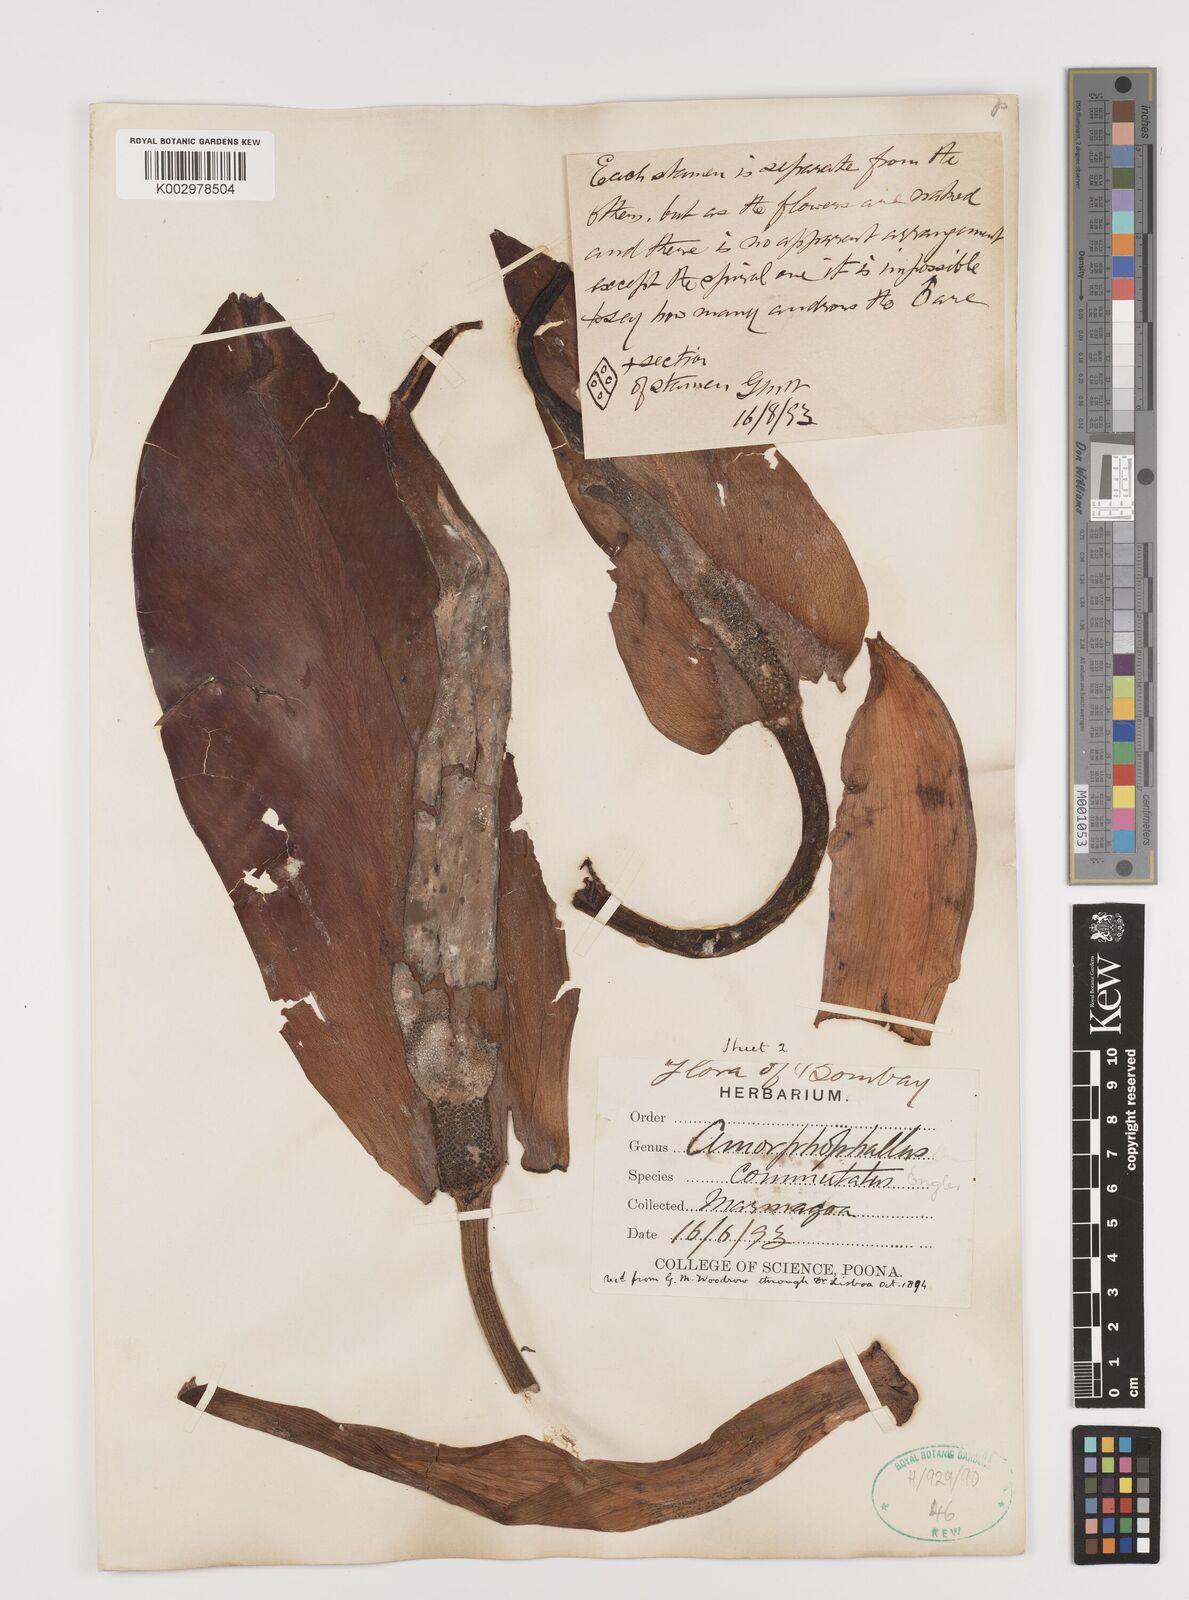 ROYAL BOTANIC GARDENS KEW
K002978504
Each stamen is separate from the
others, but as the flowers are naked
and there is no apparent arrangement
except the spiral one it is impossible
to say how many androus the are
+ section
of stamen GMW
16/8/93
Sheet 2
Flora of Bombay
HERBARIUM.
Order
Genus Amorphophallus
Species commutatus Engler
Collected Marmagoa
Date 16/6/93
COLLEGE OF SCIENCE, POONA.
Rec'd from G. M. Woodrow through Dr Lisboa Oct. 1894
ROYAL BOTANIC GARDENS
H/929/90
46
KEW
inches
Don Williams
M001053
centimeters
Kew
Royal Botanic Gardens
copyright reserved
0 1 2 3 4 5 6 7 8 9 10
cm